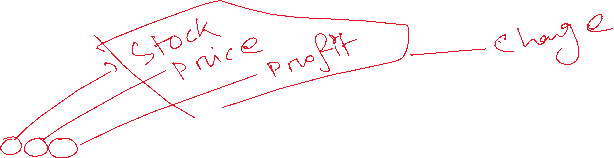 Stock
price
profit
change